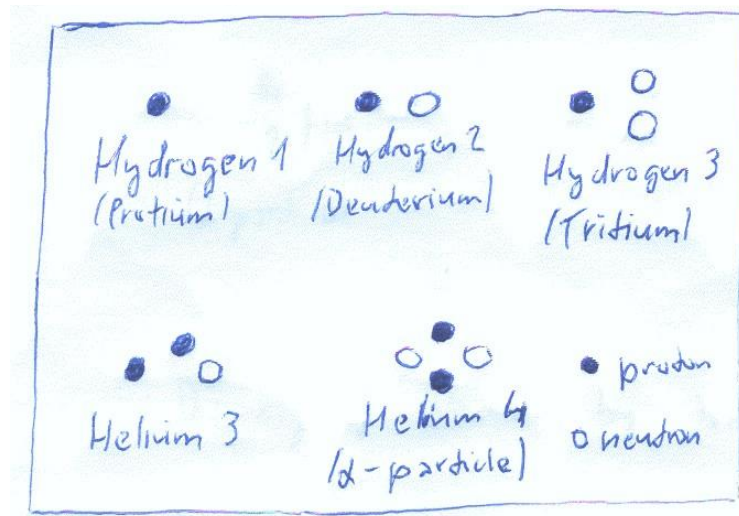 Hydrogen 1
(Protium)
Hydrogen 2
(Deuterium)
Hydrogen 3
(Tritium)
Helium 3
Helium 4
(α-particle)
proton
neutron